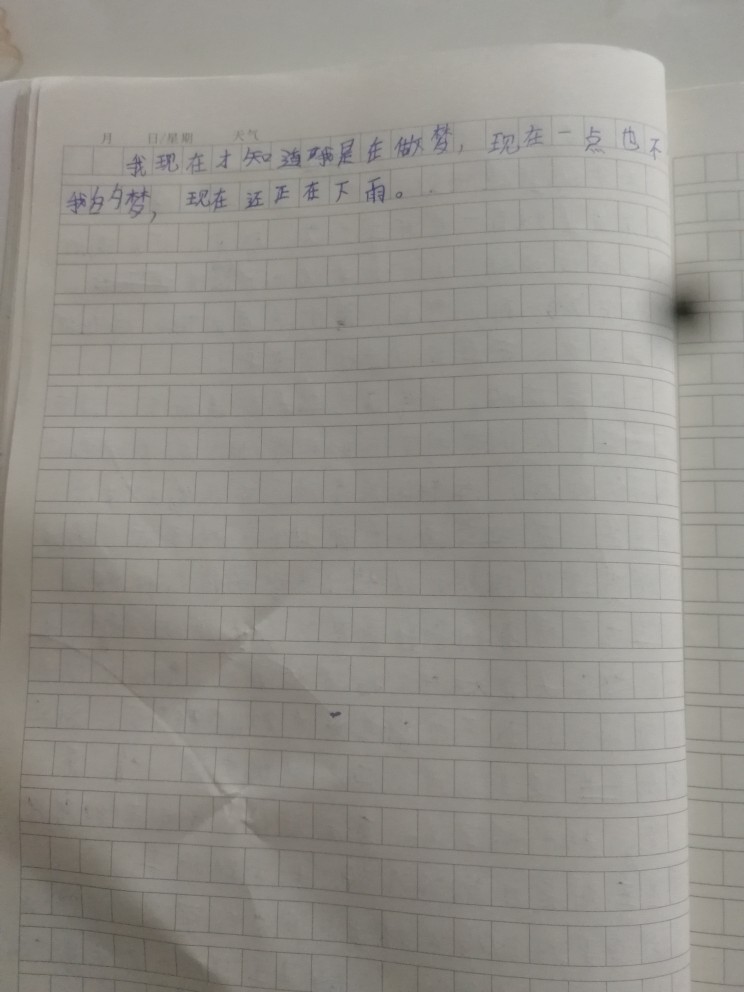 月 日/星期 天气
我现在才知道我是在做梦，现在一点也不
我的梦，现在还正在下雨。